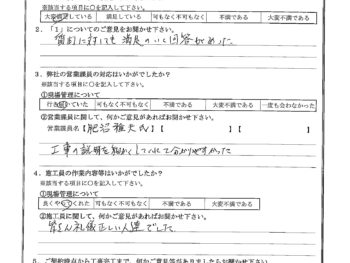 ※該当する項目に○を記入して下さい。
大変満足している 満足している 可もなく不可もなく 不満である 大変不満である
2．「1」についてのご意見をお聞かせ下さい。
質問に対しても満足のいく回答があった
3．弊社の営業課員の対応はいかがでしたか？
※該当する項目に○を記入して下さい。
①現場管理について
行き届いていた 可もなく不可もなく 不満である 大変不満である 一度も会わなかった
②営業課員に関して、何かご意見があればお聞かせ下さい。
営業課員名【肥沼雅大氏】【 】【 】
工事の説明を細かくしていて分かりやすかった
4．施工員の作業内容等はいかがでしたか？
※該当する項目に○を記入して下さい。
①現場管理について
良くやってくれた 可もなく不可もなく 不満である 大変不満である
②施工員に関して、何かご意見があればお聞かせ下さい。
皆さん礼儀正しい人達でした
5．ご契約時点から工事完了まで、何かご意見等がありましたらお聞かせ下さい。